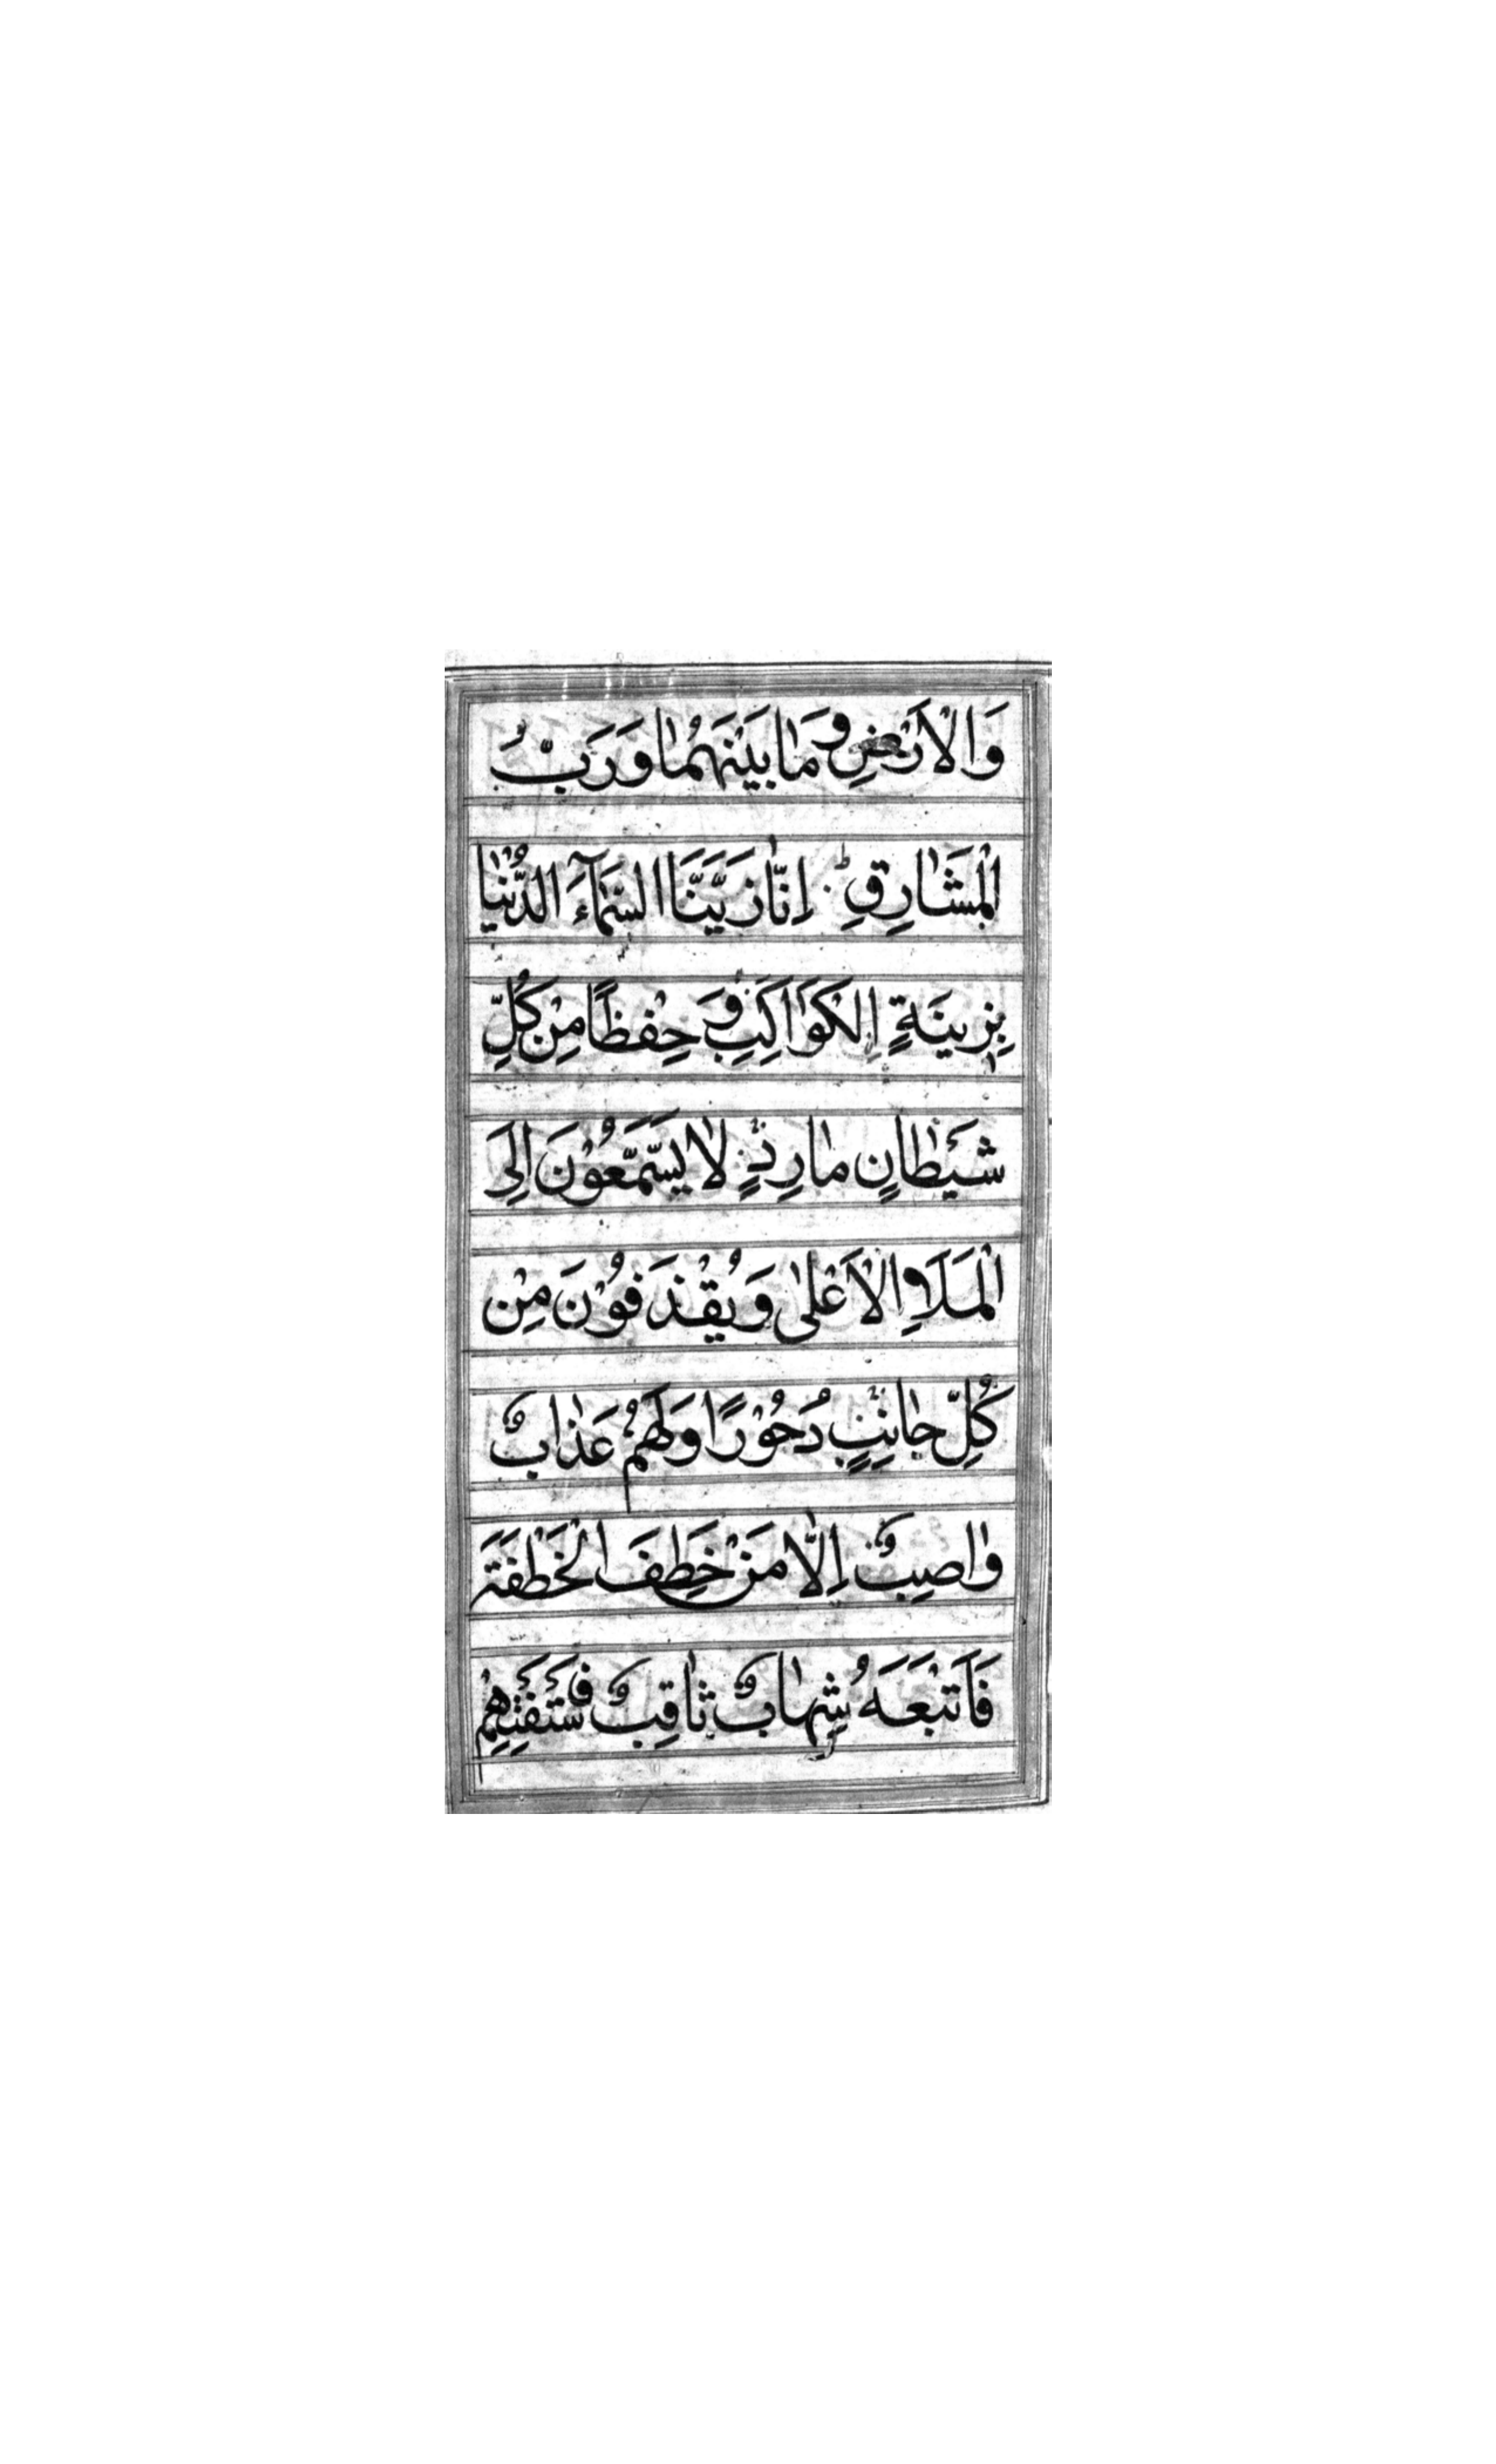 وَالْاَرْضِ وَمٰا بَيْنَهُمٰا وَرَبُّ
الْمَشٰارِقِ ط اِنّٰا زَيَّنَّا السَّمٰآءَ الدُّنْيٰا
بِزِينَةٍ اِلْكَوٰاكِبِ وَحِفْظًا مِنْ كُلِّ
شَيْطٰانٍ مٰارِدٍ لٰا يَسَّمَّعُوْنَ اِلَى
الْمَلَاِ الْاَعْلٰى وَيُقْذَفُوْنَ مِنْ
كُلِّ جٰانِبٍ دُحُوْرًا وَلَهُمْ عَذٰابٌ
وٰاصِبٌ اِلّٰا مَنْ خَطِفَ الْخَطْفَةَ
فَاَتْبَعَهُ شِهٰابٌ ثٰاقِبٌ فَسْتَفْتِهِمْ